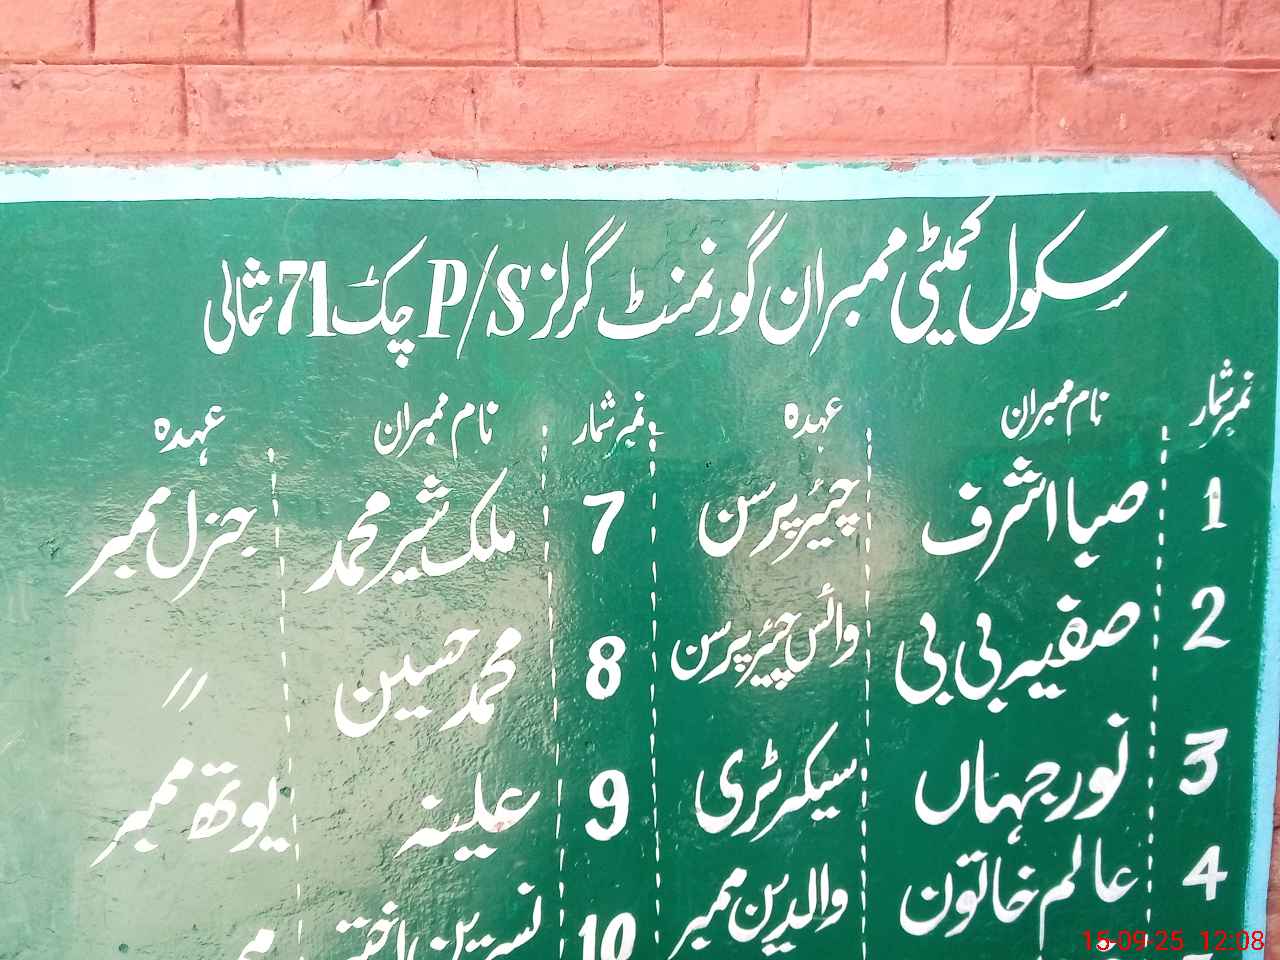 سکول کمیٹی ممبران گورنمنٹ گرلز P/S چک 71 شمالی
نمبر شمار نام ممبران عہدہ نمبر شمار نام ممبران عہدہ
1 صبا اشرف چیئر پرسن 7 ملک شیر محمد جنرل ممبر
2 صفیر بی بی وائس چیئر پرسن 8 محمد حسین //
3 نور جہاں سیکرٹری 9 علینہ یوتھ ممبر
4 عالم خاتون والدین ممبر 10 نسرین اختر
15-09-25 12:08